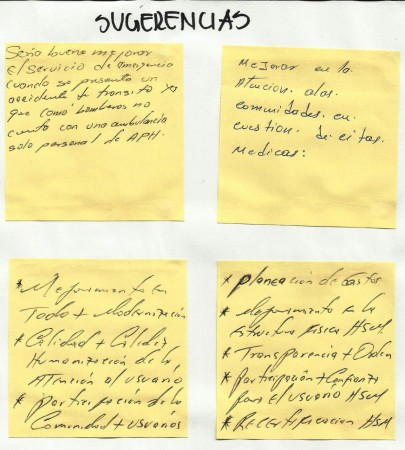 SUGERENCIAS
Seria bueno mejorar
El servicio de emergencia
cuando se presenta un
accidente de transito ya
que como bomberos no
cuenta con una ambulancia
solo personal de APH.
Mejorar en la
Atencion. a las
comunidades. en
cuestion. de citas.
Medicas:
* Mejoramiento en
Todo + Modernización
* Calidad + Calidez
Humanización de la
Atención al usuario
* participación de la
Comunidad + usuarios
* planeación de Gastos
* Mejoramiento en la
estructura fisica HSM
* Transparencia + Orden
* Participación + Confianza
para El usuario HSM
* Recertificacion HSM